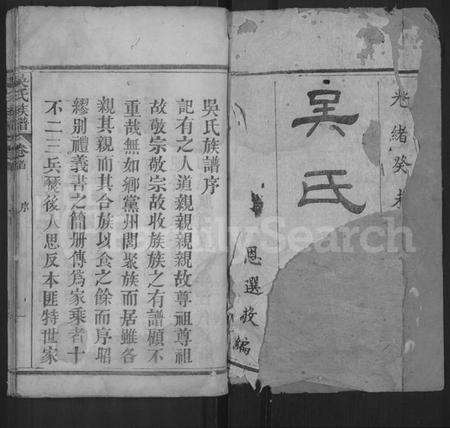 光緒癸未
吳氏
恩選校編
吳氏族譜序
記有之人道親親親親故尊祖尊祖
故敬宗敬宗故收族族之有譜顧不
重哉無如鄉黨州閭聚族而居雖各
親其親而其合族以食之餘而序昭
繆別禮義書之簡册傳爲家乘者十
不二三兵燹後人思反本匪特世家
吳氏族譜 卷首 序
FamilySearch